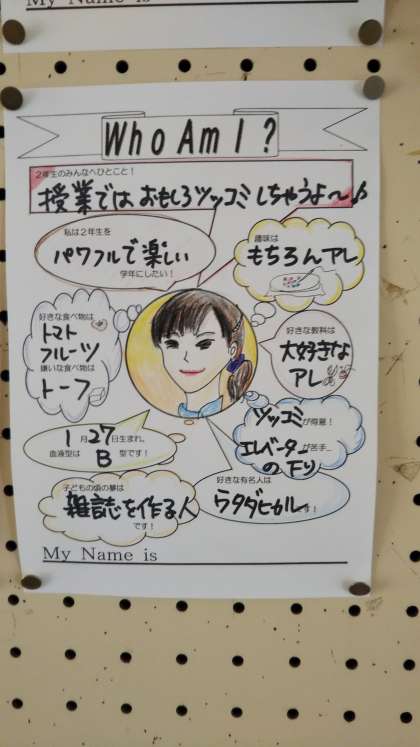 My Name is
Who Am I ?
2年生のみんなへひとこと！
授業では おもしろツッコミしちゃうよ～♪
私は2年生を
パワフルで楽しい
学年にしたい！
趣味は
もちろんアレ
好きな食べ物は
トマト
フルーツ
嫌いな食べ物は
トーフ
好きな教科は
大好きな
アレ
1月27日生まれ。
血液型は B 型です！
ツッコミが得意！
エレベーターが苦手…
の下り
子どもの頃の夢は
雑誌を作る人
です！
好きな有名人は
ウタダヒカルです！
My Name is